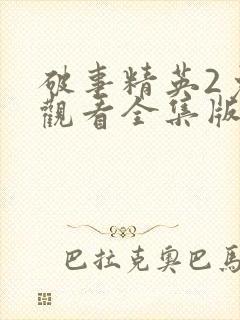 破事精英2
觀看全集版
巴拉克奧巴馬